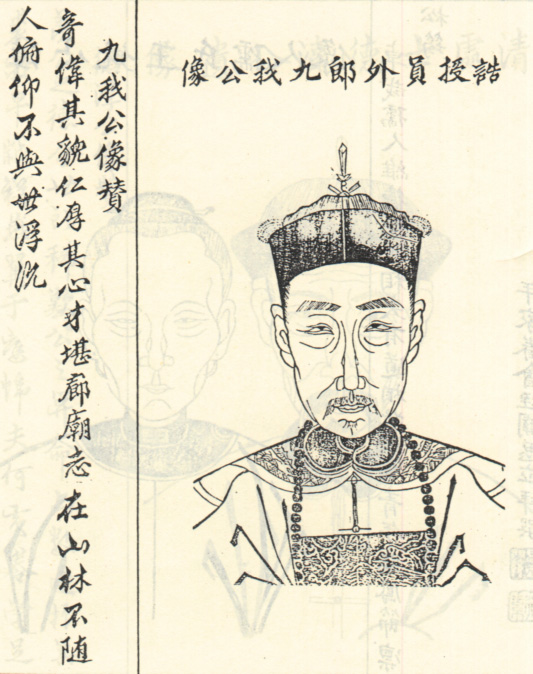 誥授員外郎九我公像
九我公像贊
奇偉其貌仁厚其心才堪廊廟志在山林不隨
人俯仰不與世浮沉